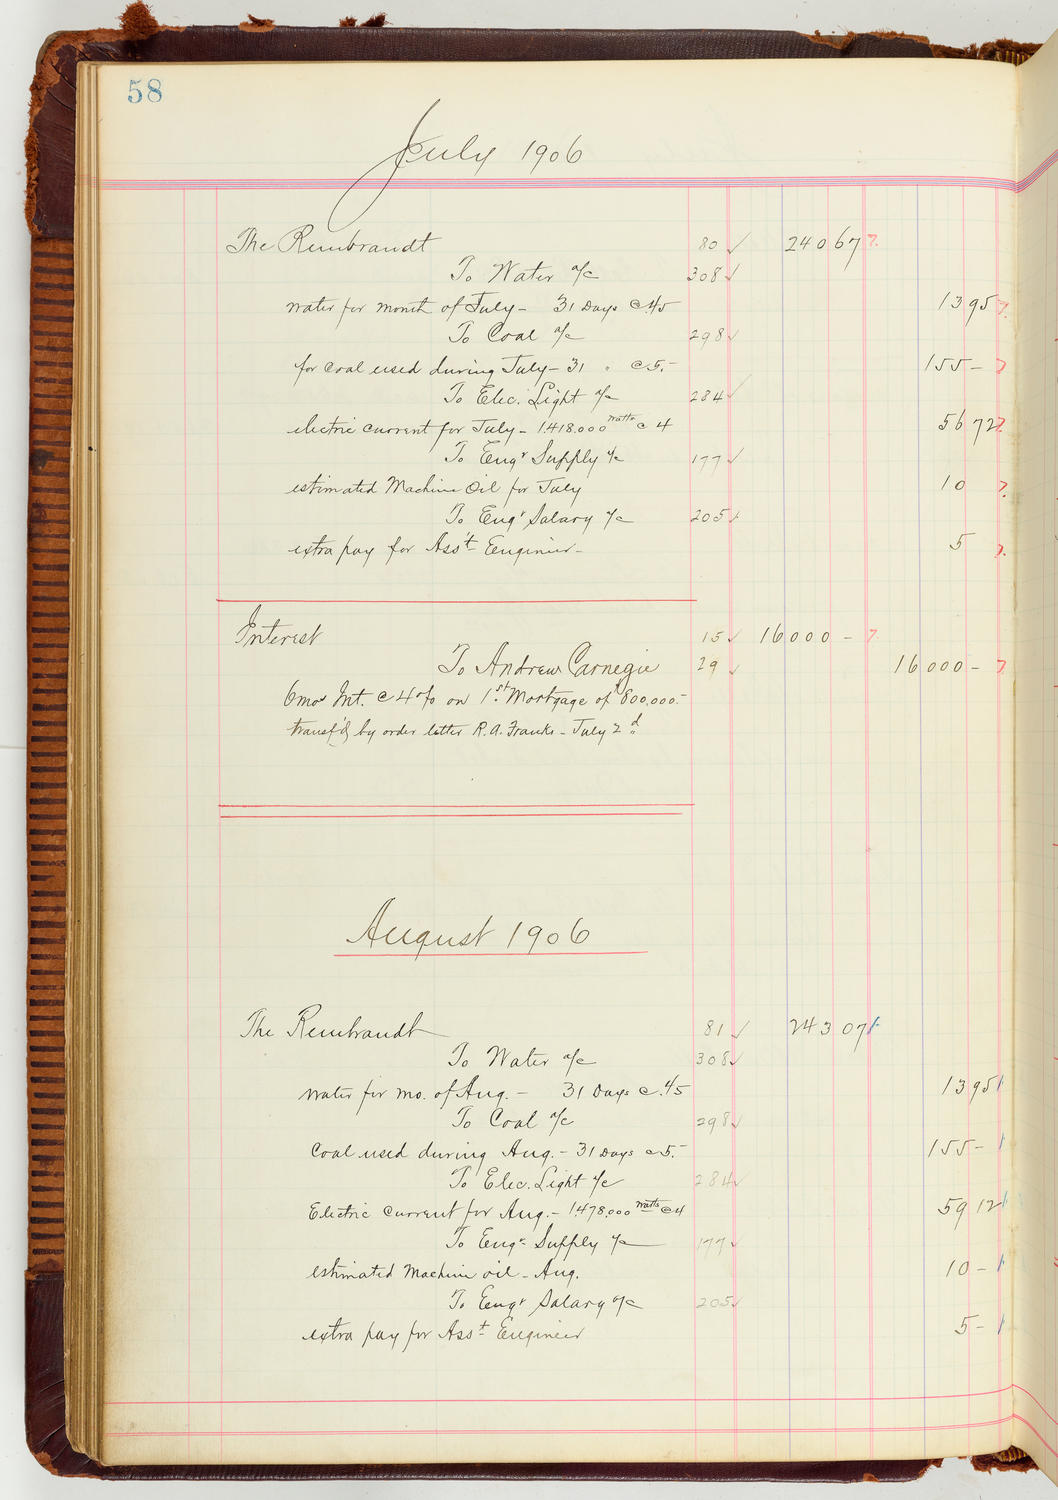 58
July 1906
The Rembrandt 80 ✓ 240 67
To Water a/c 308 ✓
water for month of July - 31 Days @ .45 13 95
To Coal a/c 298 ✓
for coal used during July - 31 " @ 5.- 155 -
To Elec. Light a/c 284 ✓
electric current for July - 1.418.000 watts @ 4 56 72
To Engr Supply a/c 177 ✓
estimated Machine Oil for July 10
To Engr Salary a/c 205 ✓
extra pay for Ass't Engineer - 5
Interest 15 ✓ 16000 -
To Andrew Carnegie 29 ✓ 16000 -
6mos Int. @ 4 o/o on 1st Mortgage of 800.000.-
transf'd by order letter R.A. Franks - July 2d
August 1906
The Rembrandt 81 ✓ 243 07
To Water a/c 308 ✓
water for mo. of Aug. - 31 Days @ .45 13 95
To Coal a/c 298 ✓
Coal used during Aug. - 31 Days @ 5.- 155 -
To Elec. Light a/c 284 ✓
Electric current for Aug. - 1.478.000 watts @ 4 59 12
To Engr Supply a/c 177 ✓
estimated Machine oil - Aug. 10 -
To Engr Salary a/c 205 ✓
extra pay for Asst Engineer 5 -